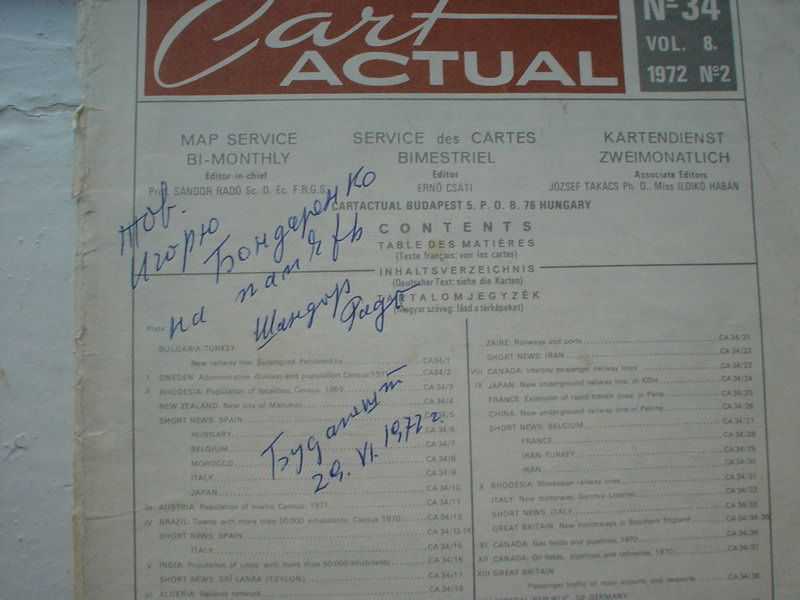 Cart
ACTUAL
Nº 34
VOL. 8.
1972 Nº2
MAP SERVICE
BI-MONTHLY
Editor-in-chief
Prof. SÁNDOR RADÓ Sc. D. Ec. F.R.G.S.
SERVICE des CARTES
BIMESTRIEL
Editor
ERNŐ CSÁTI
KARTENDIENST
ZWEIMONATLICH
Associate Editors
JÓZSEF TAKÁCS Ph. D., Miss ILDIKÓ HABÁN
CARTACTUAL BUDAPEST 5. P. O. B. 76 HUNGARY
Тов.
Игорю
Бондаренко
на память
Шандор
Радо
Будапешт
29. VI. 1972 г.
CONTENTS
TABLE DES MATIÈRES
(Texte français: voir les cartes)
INHALTSVERZEICHNIS
(Deutscher Text: siehe die Karten)
TARTALOMJEGYZÉK
(Magyar szöveg: lásd a térképeket)
Plate
BULGARIA/TURKEY
New railway line: Svilengrad-Pehlivanköy CA 34/1
I SWEDEN: Administrative division and population Census: 1971 CA 34/2
II RHODESIA: Population of localities; Census: 1969 CA 34/3
NEW ZEALAND: New city of Manukau CA 34/4
SHORT NEWS: SPAIN CA 34/5
HUNGARY CA 34/6
BELGIUM CA 34/7
MOROCCO CA 34/8
ITALY CA 34/9
JAPAN CA 34/10
III AUSTRIA: Population of towns; Census: 1971 CA 34/11
IV BRAZIL: Towns with more than 50 000 inhabitants; Census 1970 CA 34/12
SHORT NEWS: SPAIN CA 34/13-14
ITALY CA 34/15
V INDIA: Population of cities with more than 50 000 inhabitants CA 34/16
SHORT NEWS: SRI LANKA (CEYLON) CA 34/17
VI ALGERIA: Railway network CA 34/18
ZAIRE: Railways and ports CA 34/21
SHORT NEWS: IRAN CA 34/22
VIII CANADA: Intercity passenger railway lines CA 34/23
IX JAPAN: New underground railway line in Kōbe CA 34/24
FRANCE: Extension of rapid transit lines in Paris CA 34/25
CHINA: New underground railway line in Peking CA 34/26
SHORT NEWS: BELGIUM CA 34/27
FRANCE CA 34/28
IRAN TURKEY CA 34/29
IRAN CA 34/30
X RHODESIA: Rhodesian railway lines CA 34/31
ITALY: New motorway: Genova-Livorno CA 34/32
SHORT NEWS: ITALY CA 34/33
GREAT BRITAIN: New motorways in Southern England CA 34/34-35
XI CANADA: Gas fields and pipelines, 1970 CA 34/36
XII CANADA: Oil fields, pipelines and refineries, 1970 CA 34/37
XIII GREAT BRITAIN:
Passenger traffic of main airports and seaports CA 34/38
FEDERAL REPUBLIC OF GERMANY: